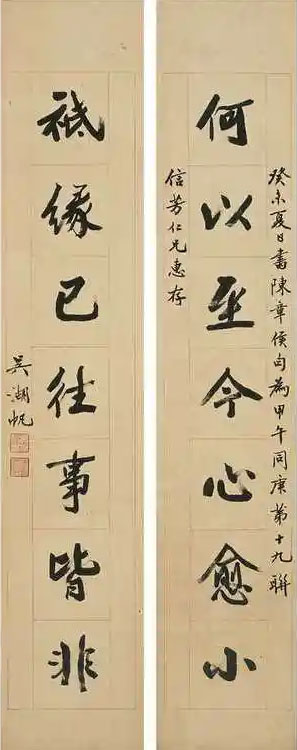 癸未夏日書陳章侯句為甲午同庚第十九聯
何以至今心愈小
信芳仁兄惠存
祇緣已往事皆非
吳湖帆